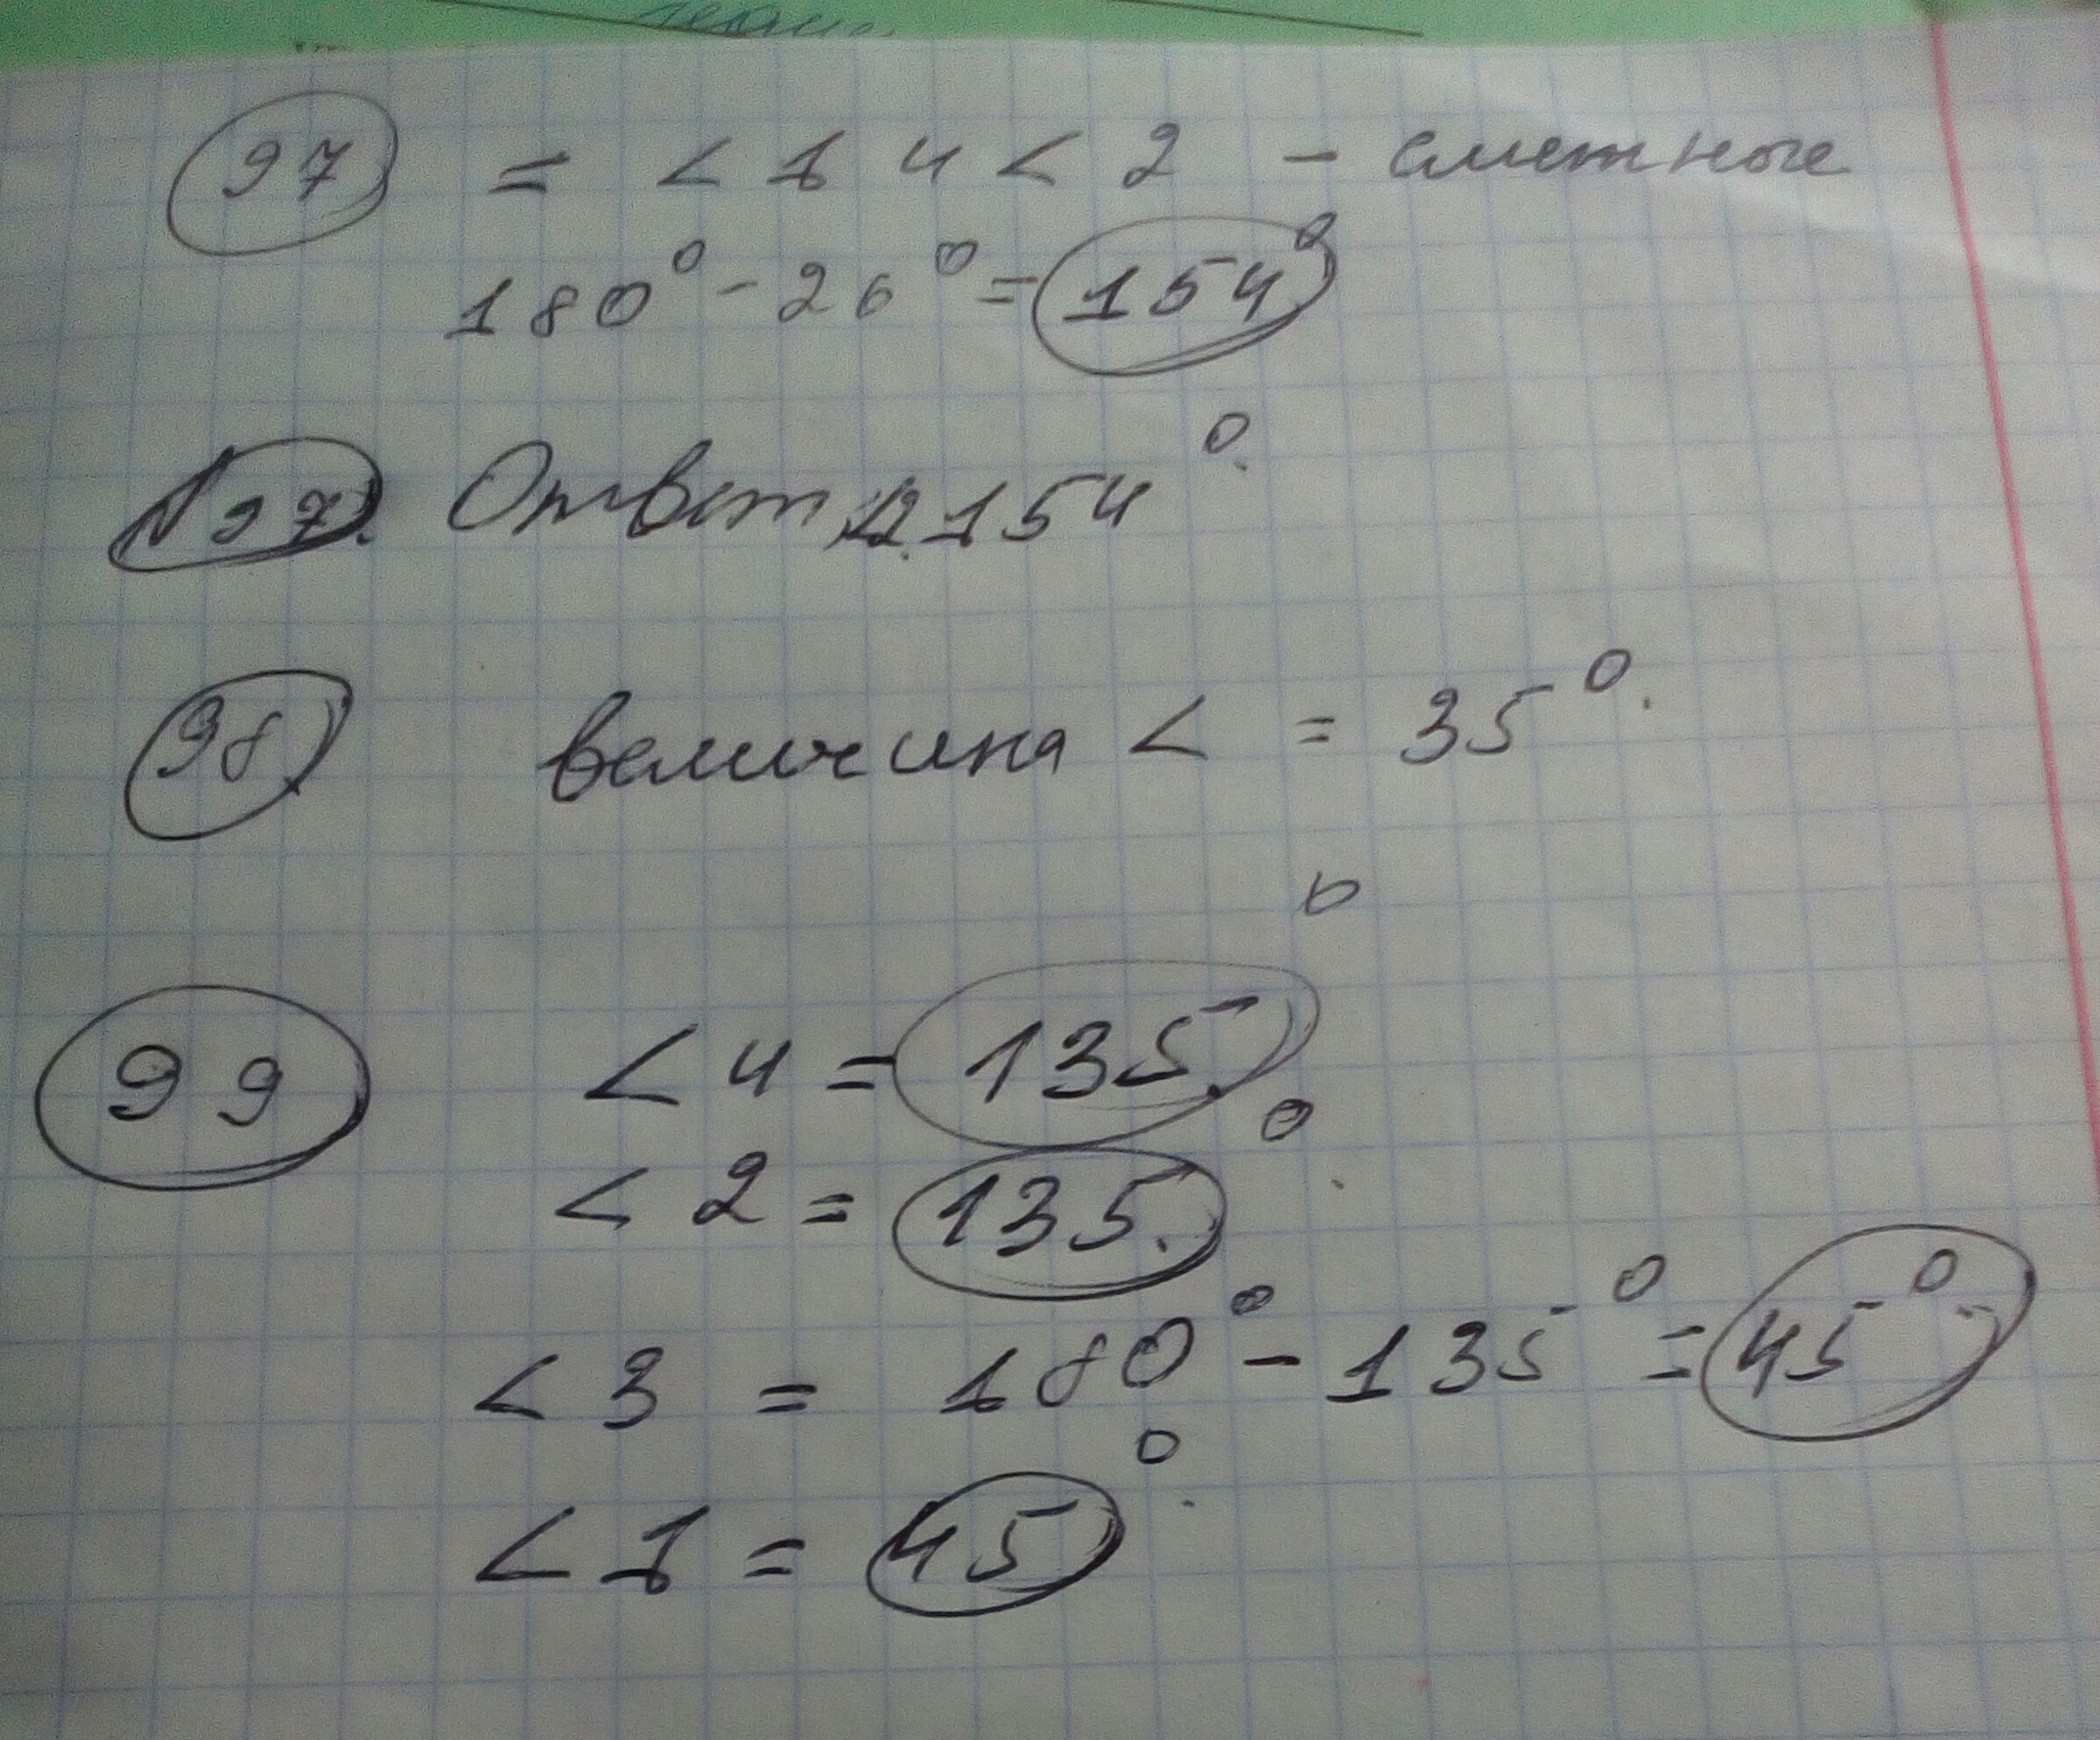 97 = < 1 и < 2 - смежные
180° - 26° = 154°
N 97. Ответ 154°.
98 величина < = 35°.
99 < 4 = 135°
< 2 = 135°.
< 3 = 180° - 135° = 45°.
< 1 = 45°.